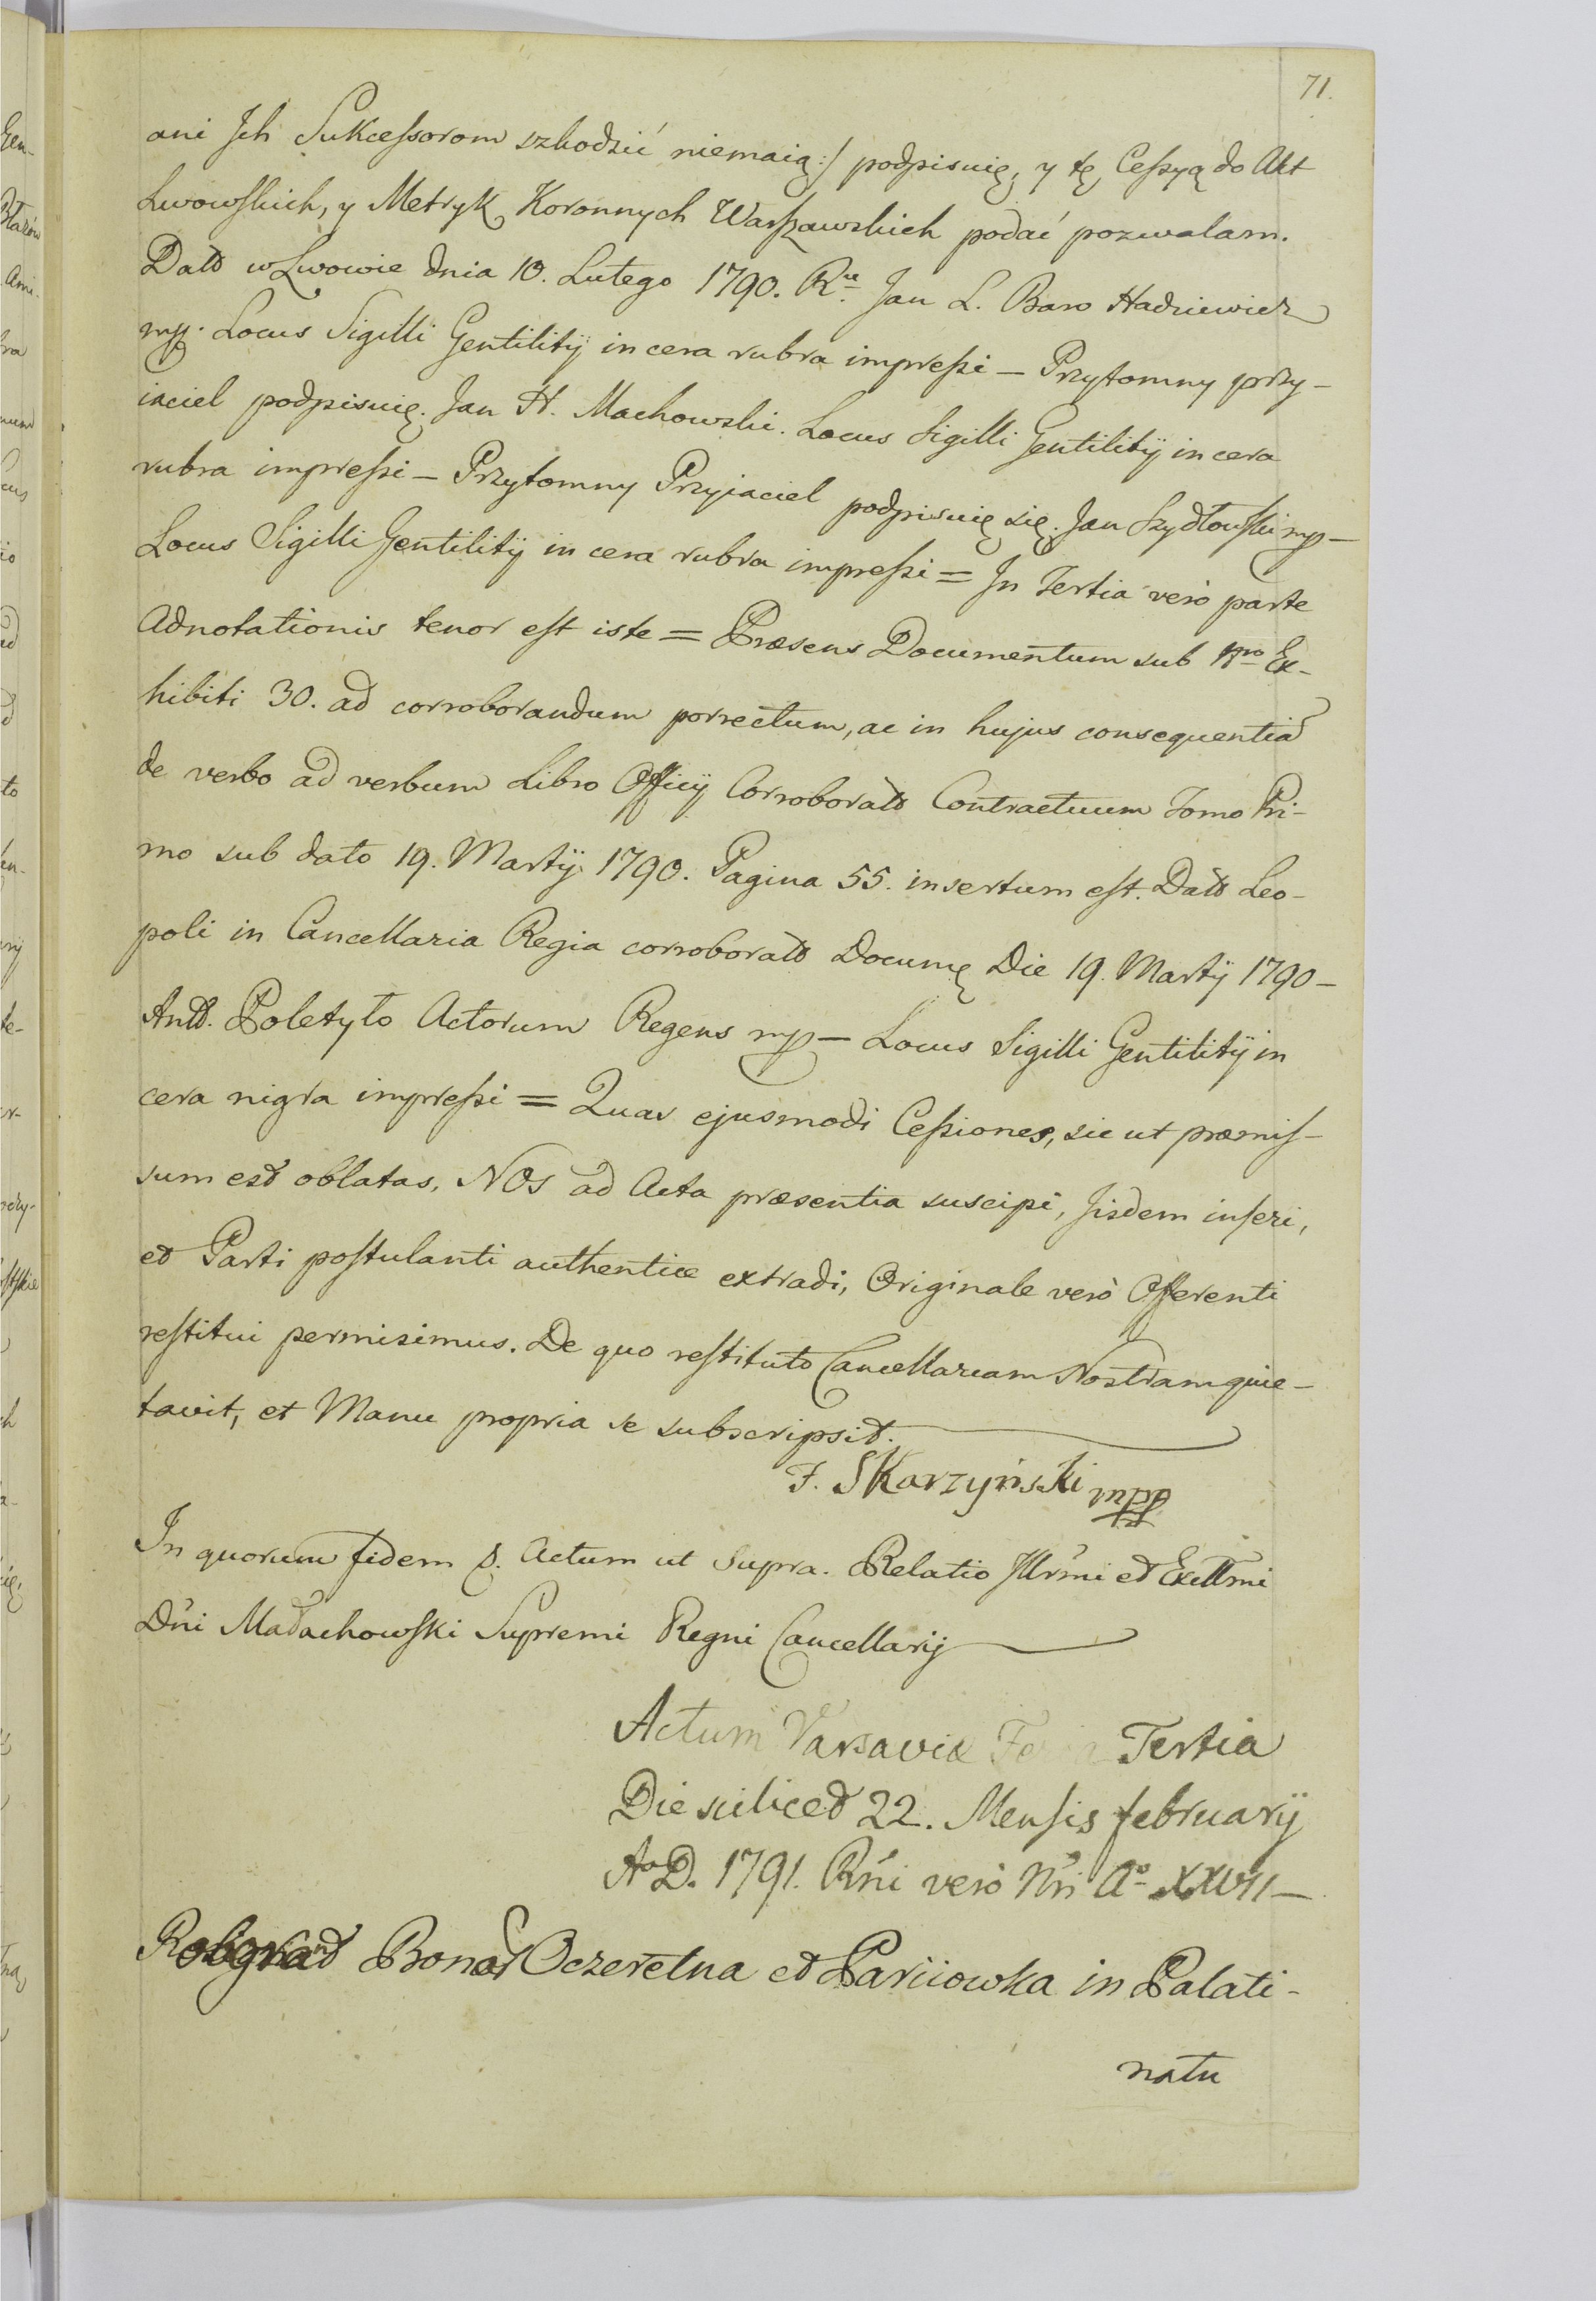 71.
ani Jch Sukceſsorom szkodzić niemaią:/ podpisuię, y tę Ceſsyą do Akt
Lwowſkich, y Metryk Koronnych Warſzawskich podać pozwalam.
Datt w Lwowie dnia 10. Lutego 1790. Ru. Jan L. Baro Hadziewicz
mp. Locus Sigilli Gentilitij in cera rubra impreſsi — Przytomny przy-
iaciel podpisuię. Jan H. Machowski. Locus Sigilli Gentilitij in cera
rubra impreſsi — Przytomny Przyiaciel podpisuię się. Jan Szydłowſki mp —
Locus Sigilli Gentilitij in cera rubra impreſsi = Jn Tertia verò parte
Adnotationis tenor eſt iste = Præsens Documentum sub Nro Ex-
hibiti 30. ad corroborandum porrectum, ac in hujus consequentia
de verbo ad verbum Libro Officij Corroboratt Contractuum Tomo Pri-
mo sub dato 19. Martij 1790. Pagina 55. insertum eſt. Datt Leo-
poli in Cancellaria Regia corroboratt Docum Die 19. Martij 1790 —
Antt. Poletyło Actorum Regens mp — Locus Sigilli Gentilitij in
cera nigra impreſsi = Quas ejusmodi Ceſsiones, sic ut præmiſ-
sum est oblatas, NOs ad Acta præsentia suscipi, Jisdem inſeri,
et Parti poſtulanti authentice extradi, Originale verò Offerenti
reſtitui permisimus. De quo reſtituto Cancellariam Nostram quie-
tavit, et Manu propria se subscripsit.
F. SKarzyński mpp
In quorum fidem S. Actum ut Supra. Relatio Jllrmi et Excllmi
Dni Małachowſki Supremi Regni Cancellarij
Actum Varsaviæ Feria Tertia
Die scilicet 22. Menſis februarij
Ao D. 1791. Rni verò Nri Ao XXVII —
Bonor Oczeretna et Pariiowka in Palati-
natu